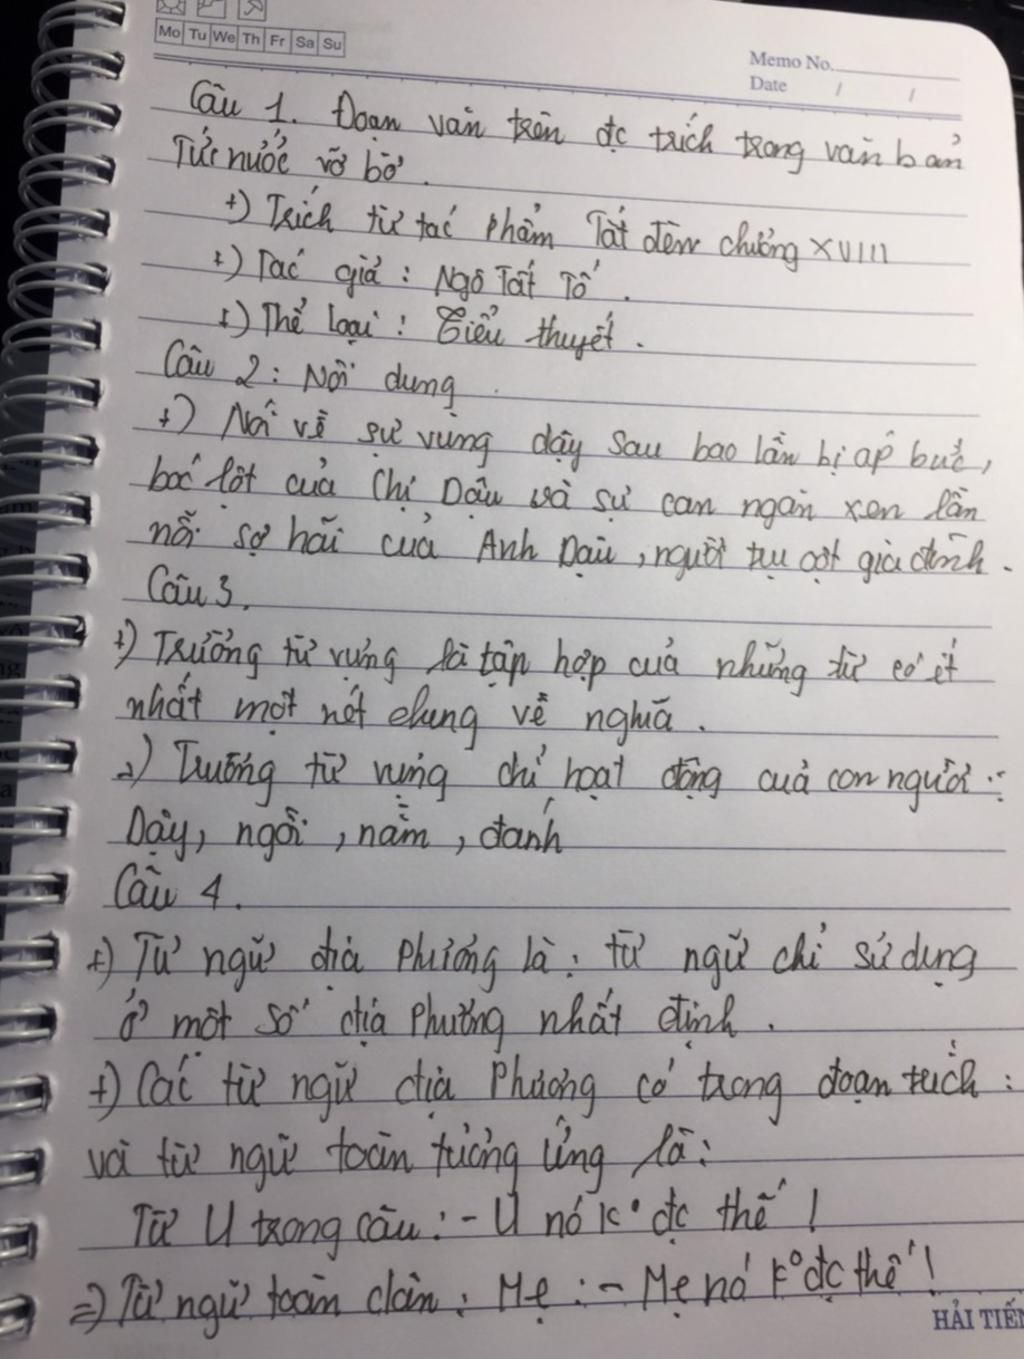 Mo Tu We Th Fr Sa Su
Memo No.
Date / /
Câu 1. Đoạn văn trên đc trích trong văn bản
Tức nước vỡ bờ.
+) Trích từ tác phẩm Tắt đèn chương XVIII
+) Tác giả : Ngô Tất Tố.
+) Thể loại : Tiểu thuyết.
Câu 2 : Nội dung
+) Nói về sự vùng dậy sau bao lần bị áp bức,
bóc lột của Chị Dậu và sự can ngăn xen lẫn
nỗi sợ hãi của Anh Dậu, người trụ cột gia đình.
Câu 3.
+) Trường từ vựng là tập hợp của những từ có ít
nhất một nét chung về nghĩa.
2) Trường từ vựng chỉ hoạt động của con người :
Dậy, ngồi, nằm, đánh
Câu 4.
+) Từ ngữ địa phương là : từ ngữ chỉ sử dụng
ở một số địa phương nhất định.
+) Các từ ngữ địa phương có trong đoạn trích :
và từ ngữ toàn tương ứng là :
Từ U trong câu : - U nó k° đc thế !
=) Từ ngữ toàn dân : Mẹ : - Mẹ nó k° đc thế !
HẢI TIẾN